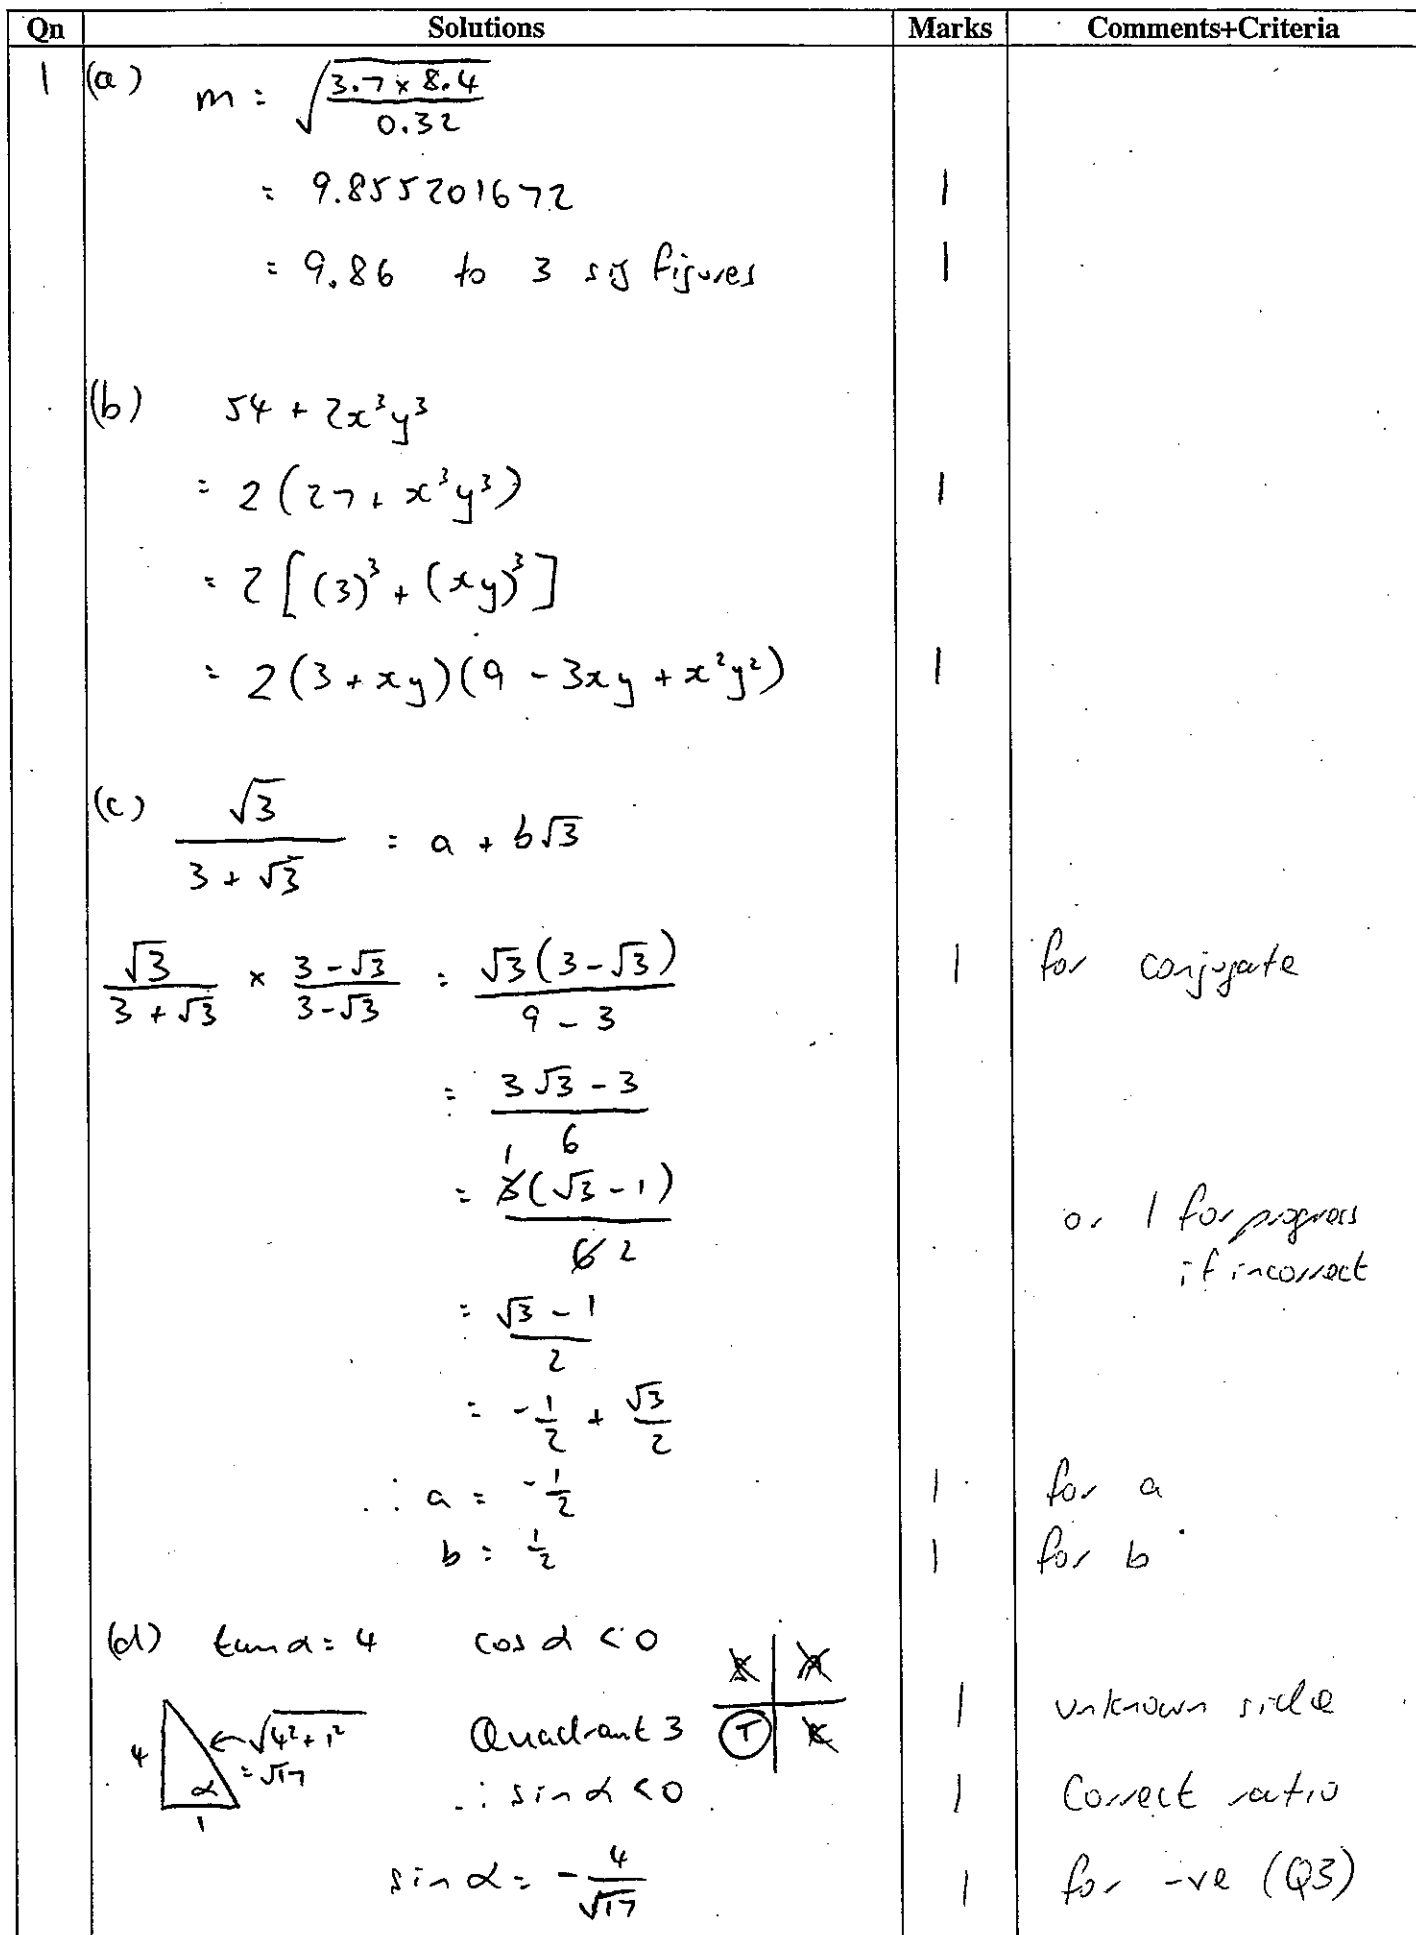 Qn Solutions Marks Comments+Criteria
1 (a) m = √(3.7 × 8.4 / 0.32)
= 9.855201672 1
= 9.86 to 3 sig figures 1
(b) 54 + 2x³y³
= 2(27 + x³y³) 1
= 2[(3)³ + (xy)³]
= 2(3 + xy)(9 - 3xy + x²y²) 1
(c) √3 / (3 + √3) = a + b√3
√3 / (3 + √3) × (3 - √3) / (3 - √3) = √3(3 - √3) / (9 - 3) 1 for conjugate
= (3√3 - 3) / 6
= 3 1 (√3 - 1) / 6 2 or 1 for progress
if incorrect
= (√3 - 1) / 2
= -1/2 + √3/2
∴ a = -1/2 1 for a
b = 1/2 1 for b
(d) tan α = 4 cos α < 0 S A
4 ← √(4² + 1²) Quadrant 3 T C 1 unknown side
α = √17 ∴ sin α < 0 1 Correct ratio
1
sin α = -4/√17 1 for -ve (Q3)